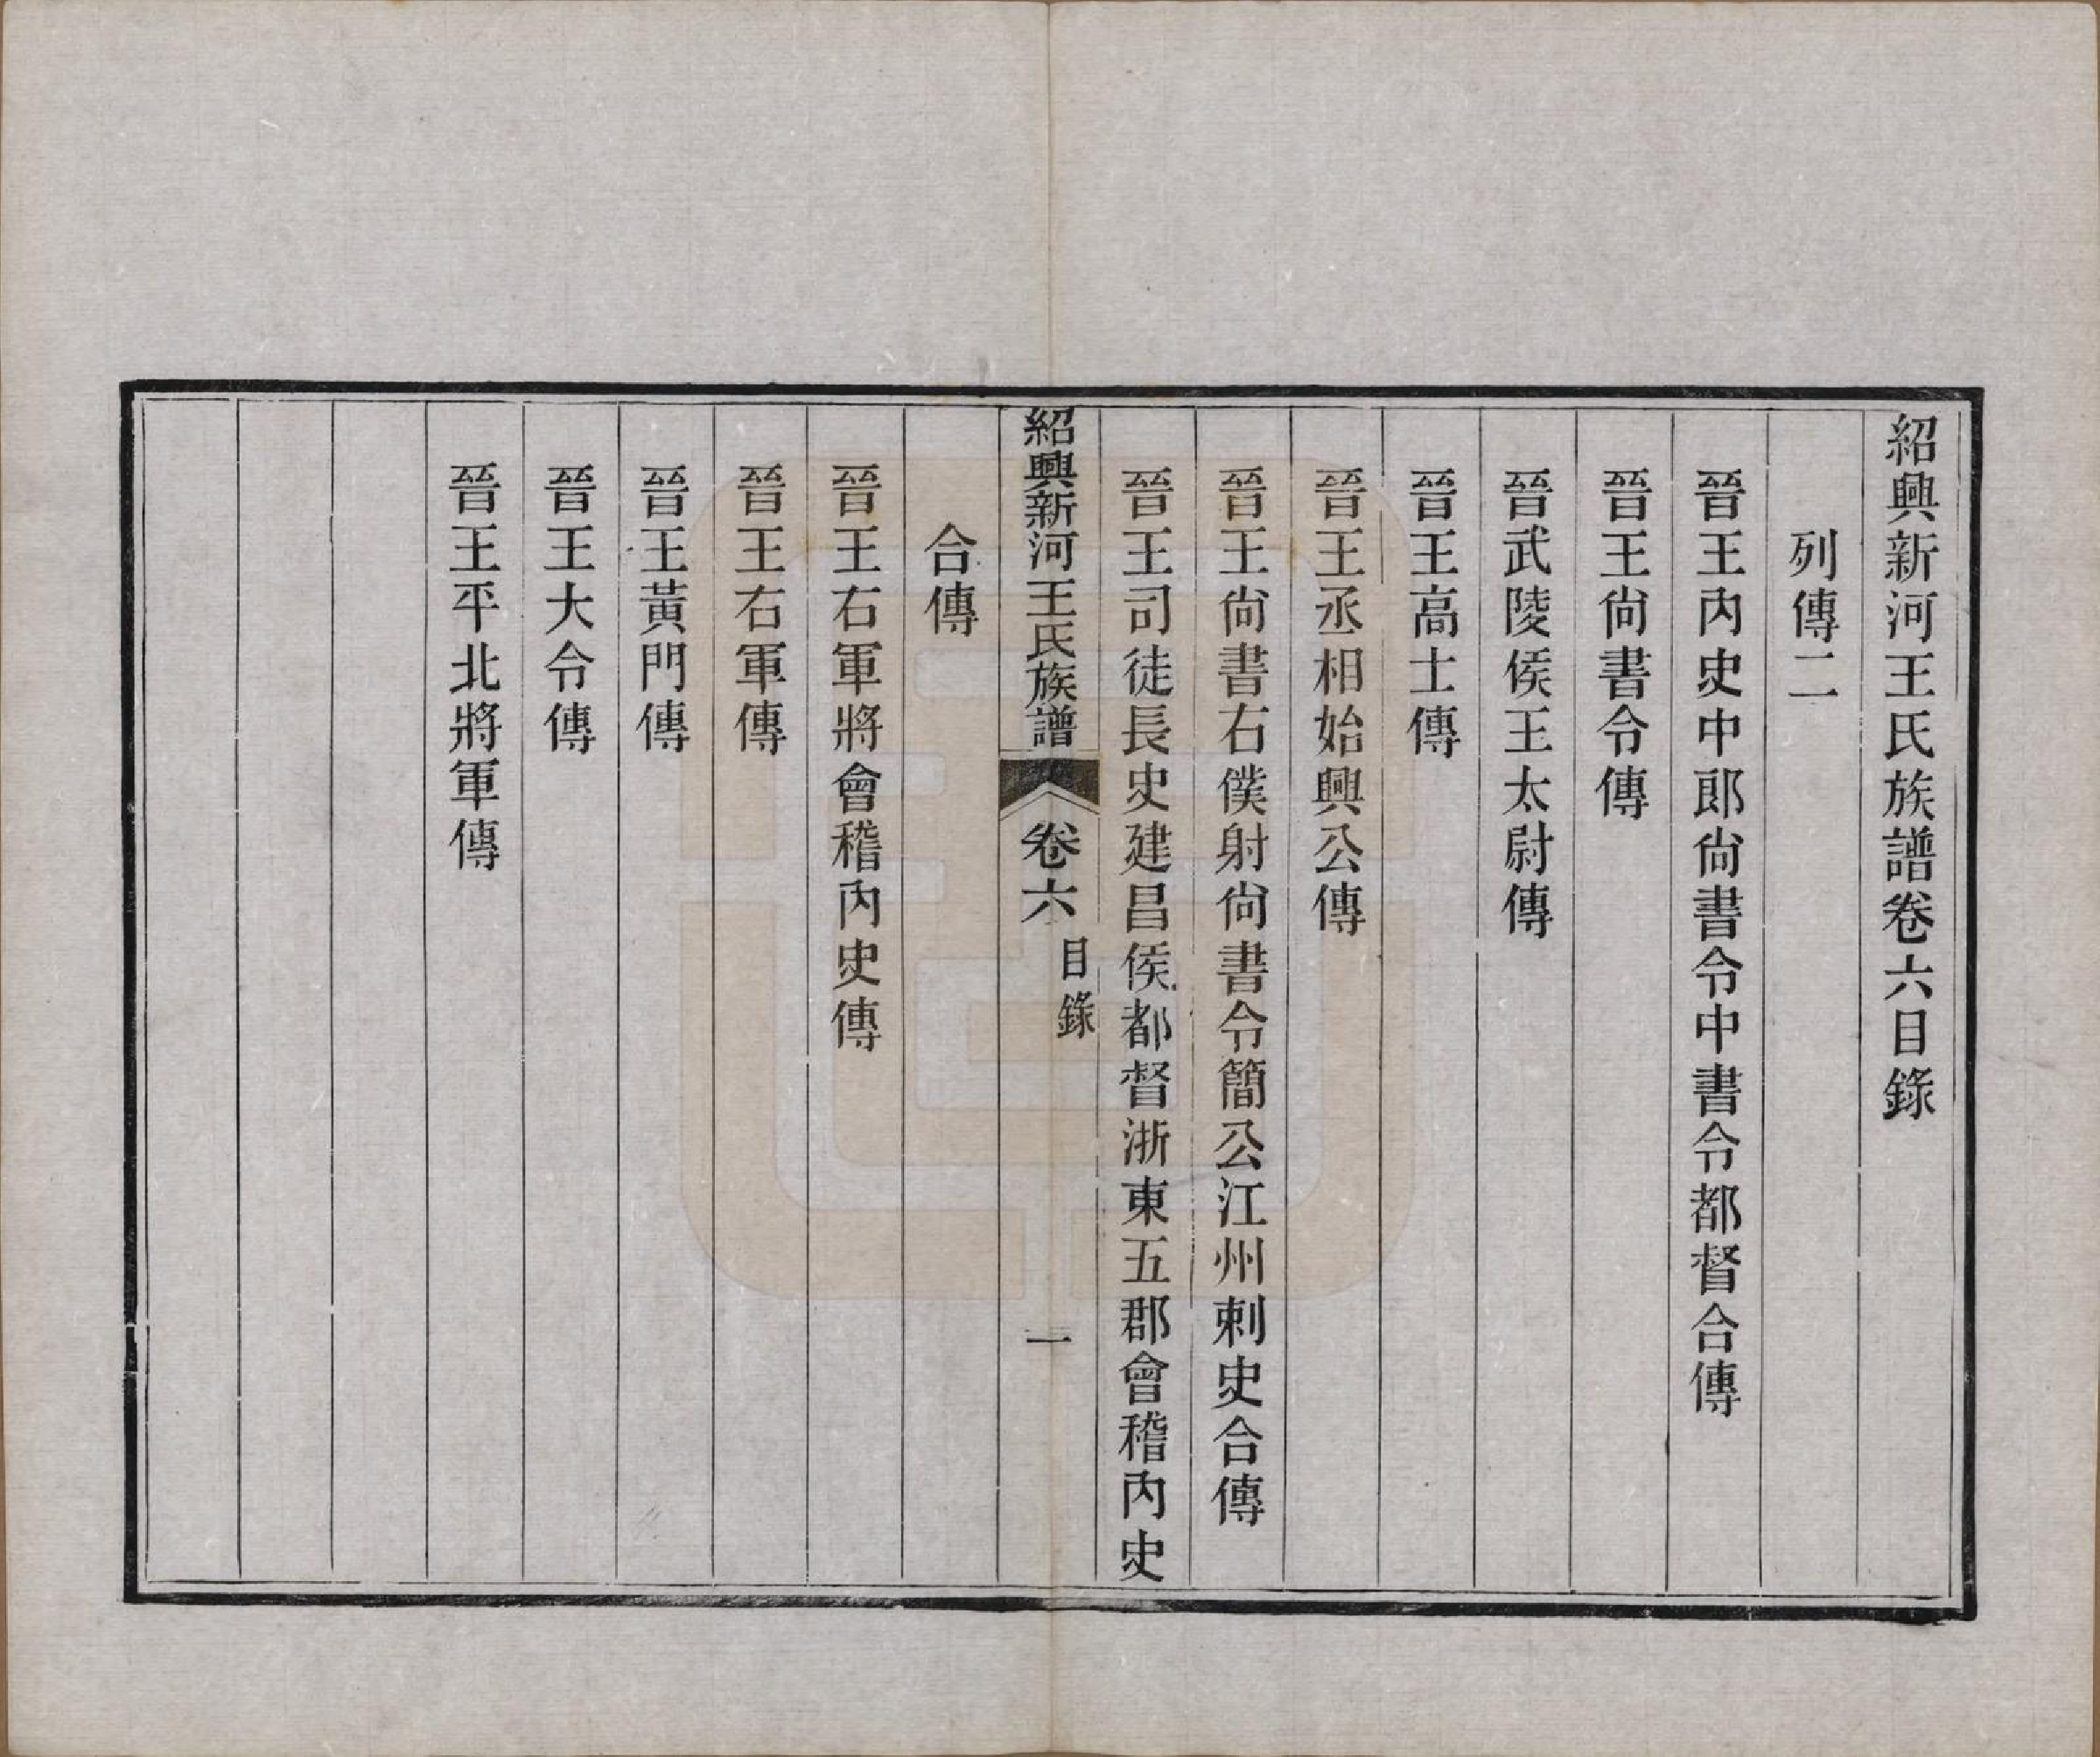 紹興新河王氏族譜卷六目錄
列傳二
晉王內史中郎尙書令中書令都督合傳
晉王尙書令傳
晉武陵侯王太尉傳
晉王高士傳
晉王丞相始興公傳
晉王尙書右僕射尙書令簡公江州刺史合傳
晉王司徒長史建昌侯都督浙東五郡會稽內史
紹興新河王氏族譜 卷六 目錄 一
合傳
晉王右軍將會稽內史傳
晉王右軍傳
晉王黃門傳
晉王大令傳
晉王平北將軍傳